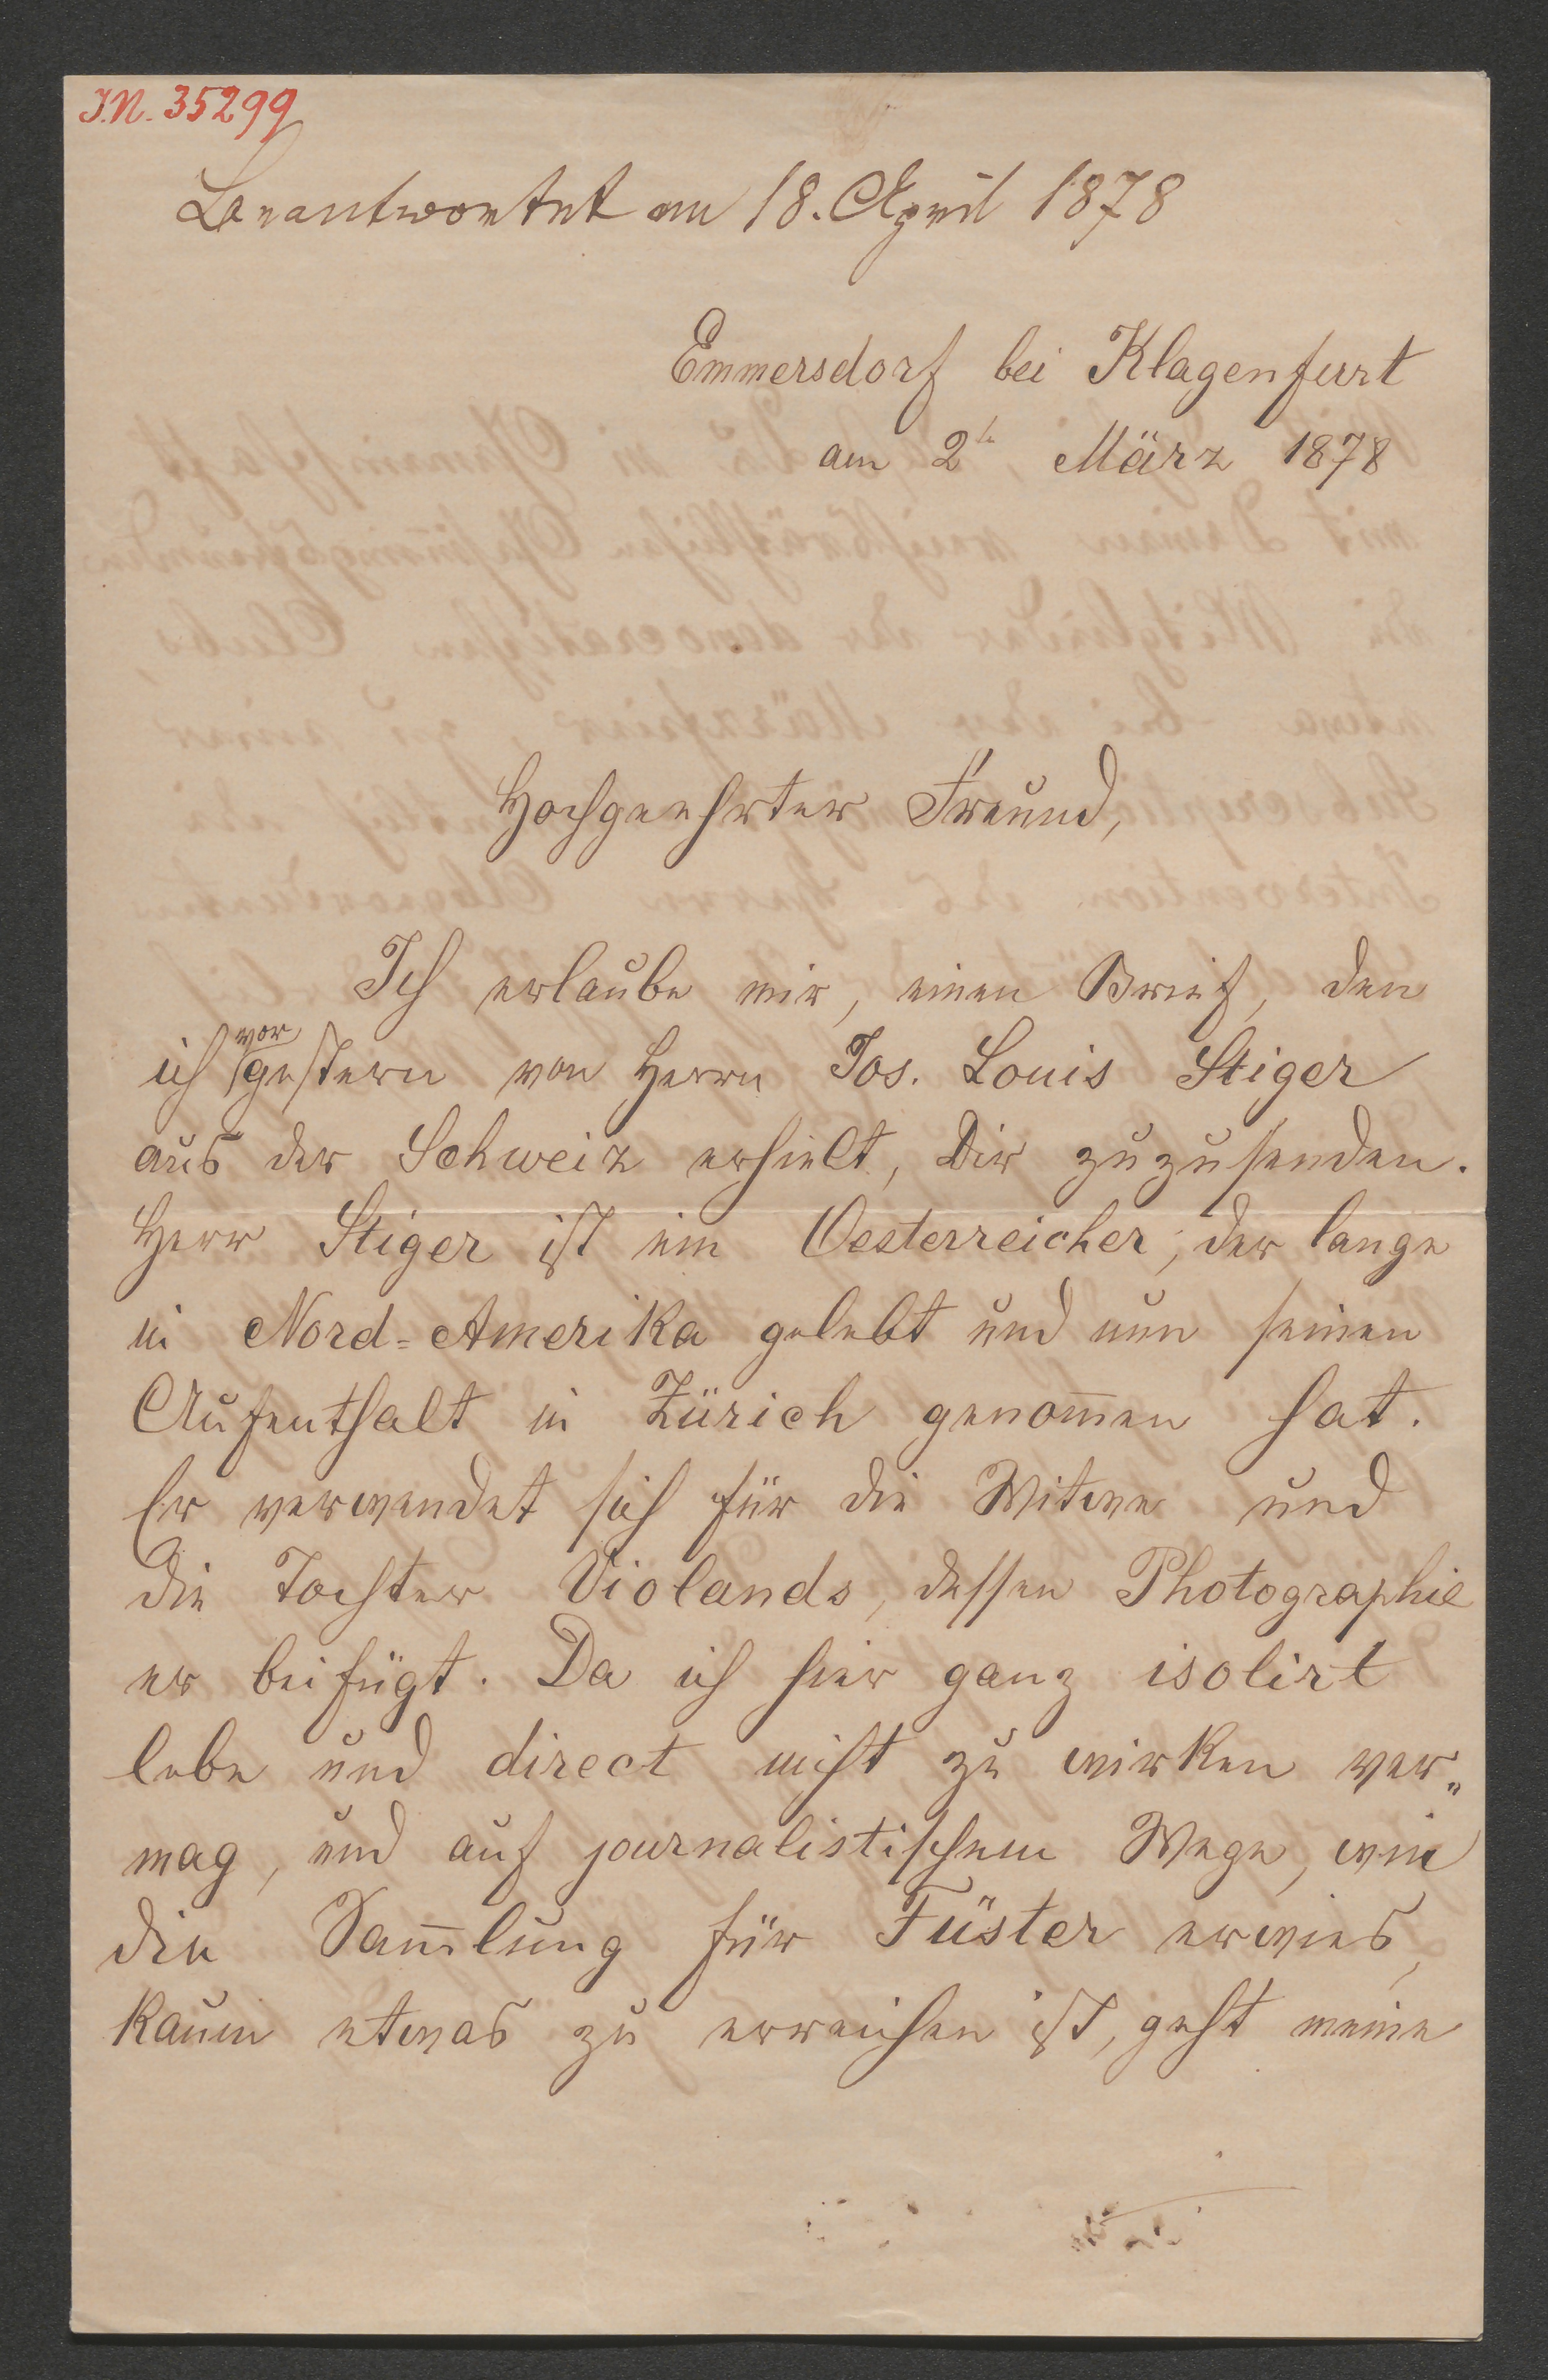 I.N. 35299
Beantwortet am 18. April 1878
Emmersdorf bei Klagenfurt
am 2t März 1878
Hochgeehrter Freund,
Ich erlaube mir, einen Brief, den
ich vorgestern von Herrn Jos. Louis Stiger
aus der Schweiz erhielt, Dir zuzusenden.
Herr Stiger ist ein Oesterreicher, der lange
in Nord-Amerika gelebt und nun seinen
Aufenthalt in Zürich genom̅en hat.
Er verwendet sich für die Witwe und
die Tochter Violands, dessen Photographie
er beifügt. Da ich hier ganz isolirt
lebe und direct nicht zu wirken ver„
mag, und auf journalistischem Wege, wie
die Sam̅lung für Füster erwies,
kaum etwas zu erreichen ist, geht meine